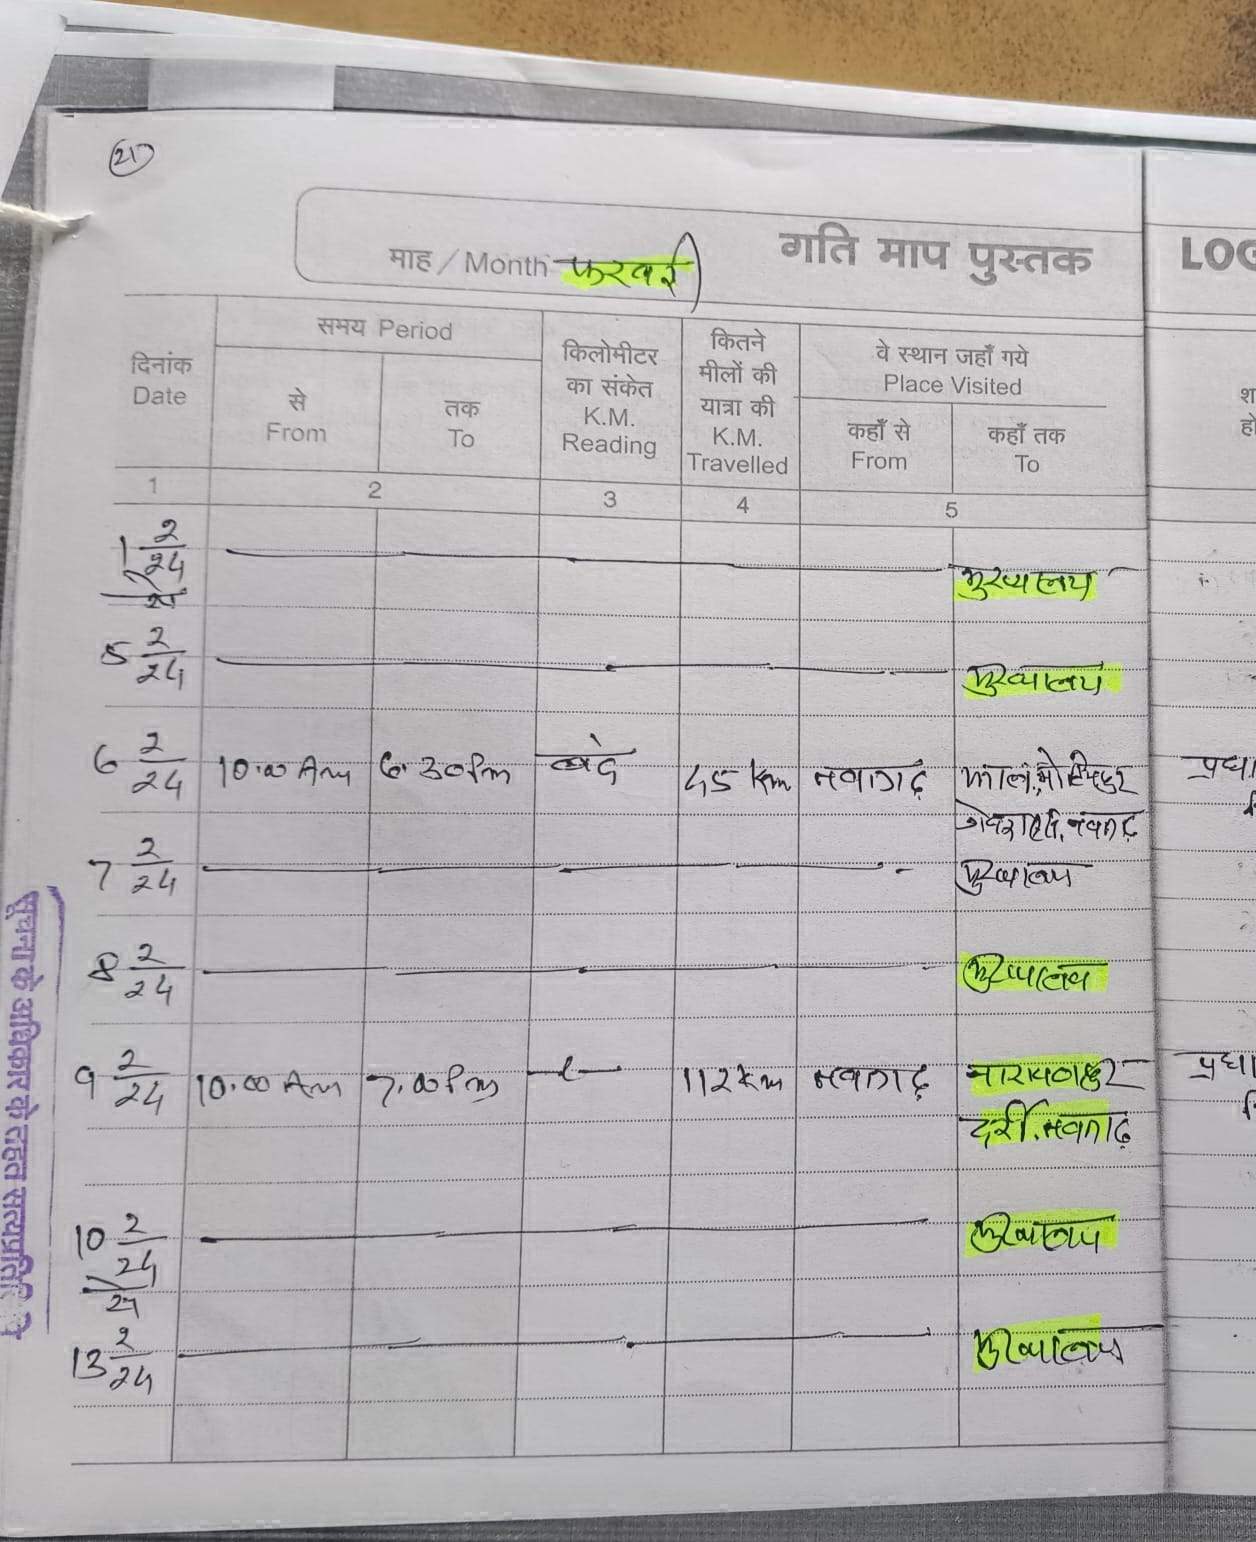 21
माह / Month फरवरी
गति माप पुस्तक
LOG
दिनांक
Date
समय Period
से
From
तक
To
किलोमीटर
का संकेत
K.M.
Reading
कितने
मीलों की
यात्रा की
K.M.
Travelled
वे स्थान जहाँ गये
Place Visited
कहाँ से
From
कहाँ तक
To
1 2 3 4 5
1 2/24 मुख्यालय
5 2/24 मुख्यालय
6 2/24 10.00 Am 6.30 Pm बंद 45 Km नवागढ़
नवागढ़
7 2/24 मुख्यालय
8 2/24 मुख्यालय
9 2/24 10.00 Am 7.00 Pm 112 Km नवागढ़ नारायणपुर
दर्री, नवागढ़
10 2/24 मुख्यालय
24
13 2/24 मुख्यालय
सूचना के अधिकार के तहत सत्यप्रतिलिपि